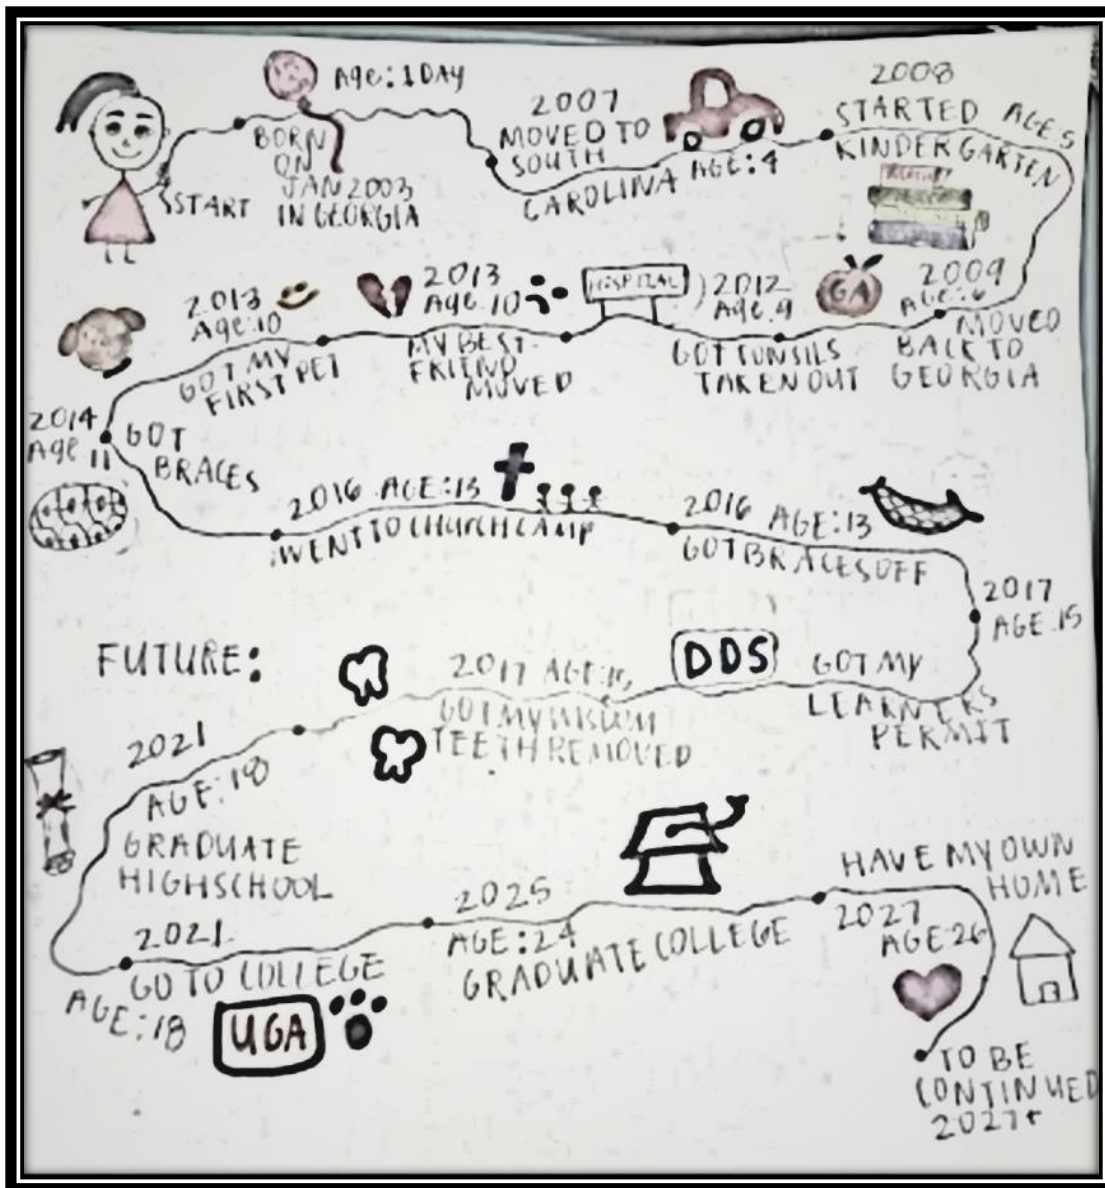 START
Age: 1 DAY
BORN
ON
JAN 2003
IN GEORGIA
2007
MOVED TO
SOUTH
CAROLINA
AGE: 4
2008
STARTED
KINDERGARTEN
AGE 5
2009
AGE: 6
MOVED
BACK TO
GEORGIA
GA
2012
Age: 9
GOT TONSILS
TAKEN OUT
HOSPITAL
2013
Age: 10
MY BEST
FRIEND
MOVED
2013
Age: 10
GOT MY
FIRST PET
2014
Age 11
GOT
BRACES
2016 AGE: 13
WENT TO CHURCH CAMP
2016 AGE: 13
GOT BRACES OFF
2017
AGE: 15
GOT MY
LEARNERS
PERMIT
DDS
2017 AGE: 15
GOT MY WISDOM
TEETH REMOVED
FUTURE:
2021
AGE: 18
GRADUATE
HIGHSCHOOL
2021
GO TO COLLEGE
AGE: 18
UGA
2025
AGE: 24
GRADUATE COLLEGE
HAVE MY OWN
HOME
2027
AGE 26
TO BE
CONTINUED
2027+